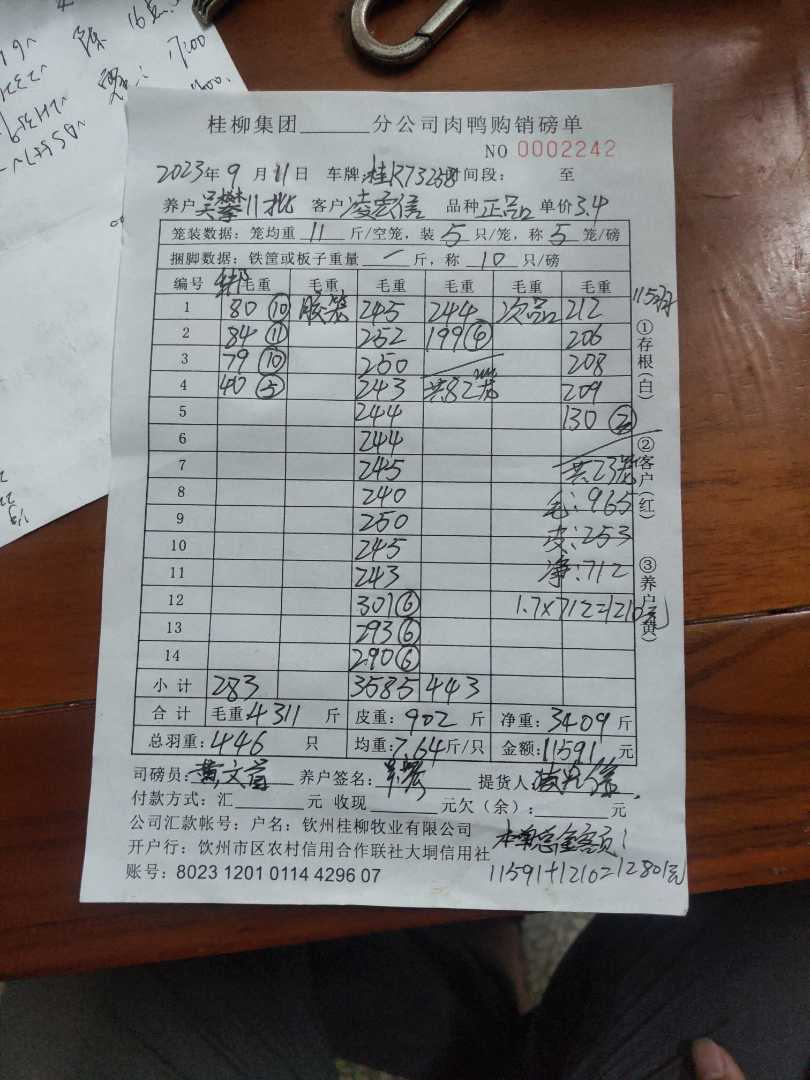 桂柳集团______分公司肉鸭购销磅单
NO 0002242
2023年9月11日 车牌:桂R73258时间段: 至
养户吴攀11批 客户凌宏信 品种正品单价3.4
笼装数据:笼均重11斤/空笼,装5只/笼,称5笼/磅
捆脚数据:铁筐或板子重量一斤,称10只/磅
编号 毛重 毛重 毛重 毛重 毛重 毛重 115羽
1 80⑩ 胶笼 245 244 次品 212
2 84⑪ 252 199⑥ 206
3 79⑩ 250 208
4 40⑤ 243 共82笼 209
5 244 130
6 244
7 245 共23笼
8 240 毛:965
9 250 皮:253
10 245 净:712
11 243
12 301⑥ 1.7×712=1210元
13 293⑥
14 290⑥
小计 283 3585 443
合计 毛重:4311斤 皮重:902斤 净重:3409斤
总羽重:446只 均重:7.64斤/只 金额:11591元
司磅员:黄文首 养户签名: 提货人
付款方式:汇______元 收现______元欠(余):______元
公司汇款帐号:户名:钦州桂柳牧业有限公司
开户行:钦州市区农村信用合作联社大垌信用社
11591+1210=12801元
账号:8023 1201 0114 4296 07
①存根(白)
②客户(红)
③养户(黄)